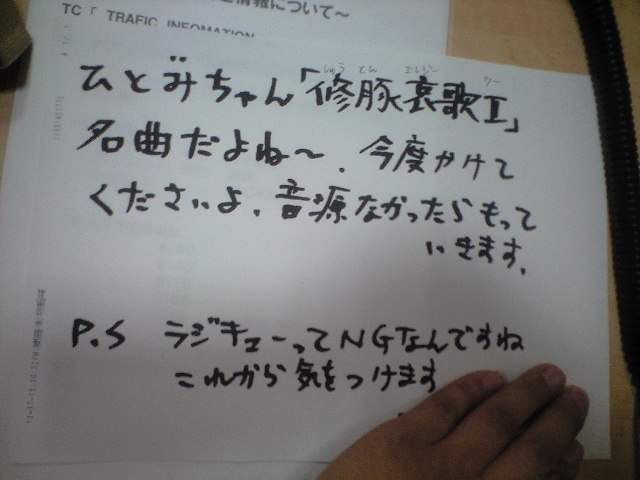 情報について～
TC「 TRAFIC INFOMATION
しゅう とん エレジー ツー
ひとみちゃん「修豚哀歌Ⅱ」
名曲だよね～、今度かけて
くださいよ、音源なかったらもって
いきます。
P.S ラジキューってNGなんですね
これから気をつけます